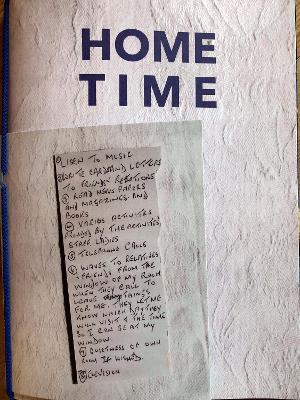 HOME
TIME
① LISEN TO MUSIC
② WRITE CARDS AND LETTERS
TO FRIENDS RELATIONS
③ READ NEWS PAPERS
AND MAGAZINGS AND
BOOKS
④ VARIOS ACTIVITIES
BY THE ACTIVITIES
STAFF LADIES
⑤ TELEPHONE CALLS
⑥ WAVES TO RELATIVES
FRIENDS FROM THE
WINDOW OF MY ROOM
WHEN THEY CALL TO
LEAVE THINGS
FOR ME. THEY LET ME
KNOW WHICH DAY THEY
WILL VISIT & THE TIME
SO I CAN BE AT MY
WINDOW.
⑦ QUIETNESS OF OWN
ROOM IF WISHED.
⑧